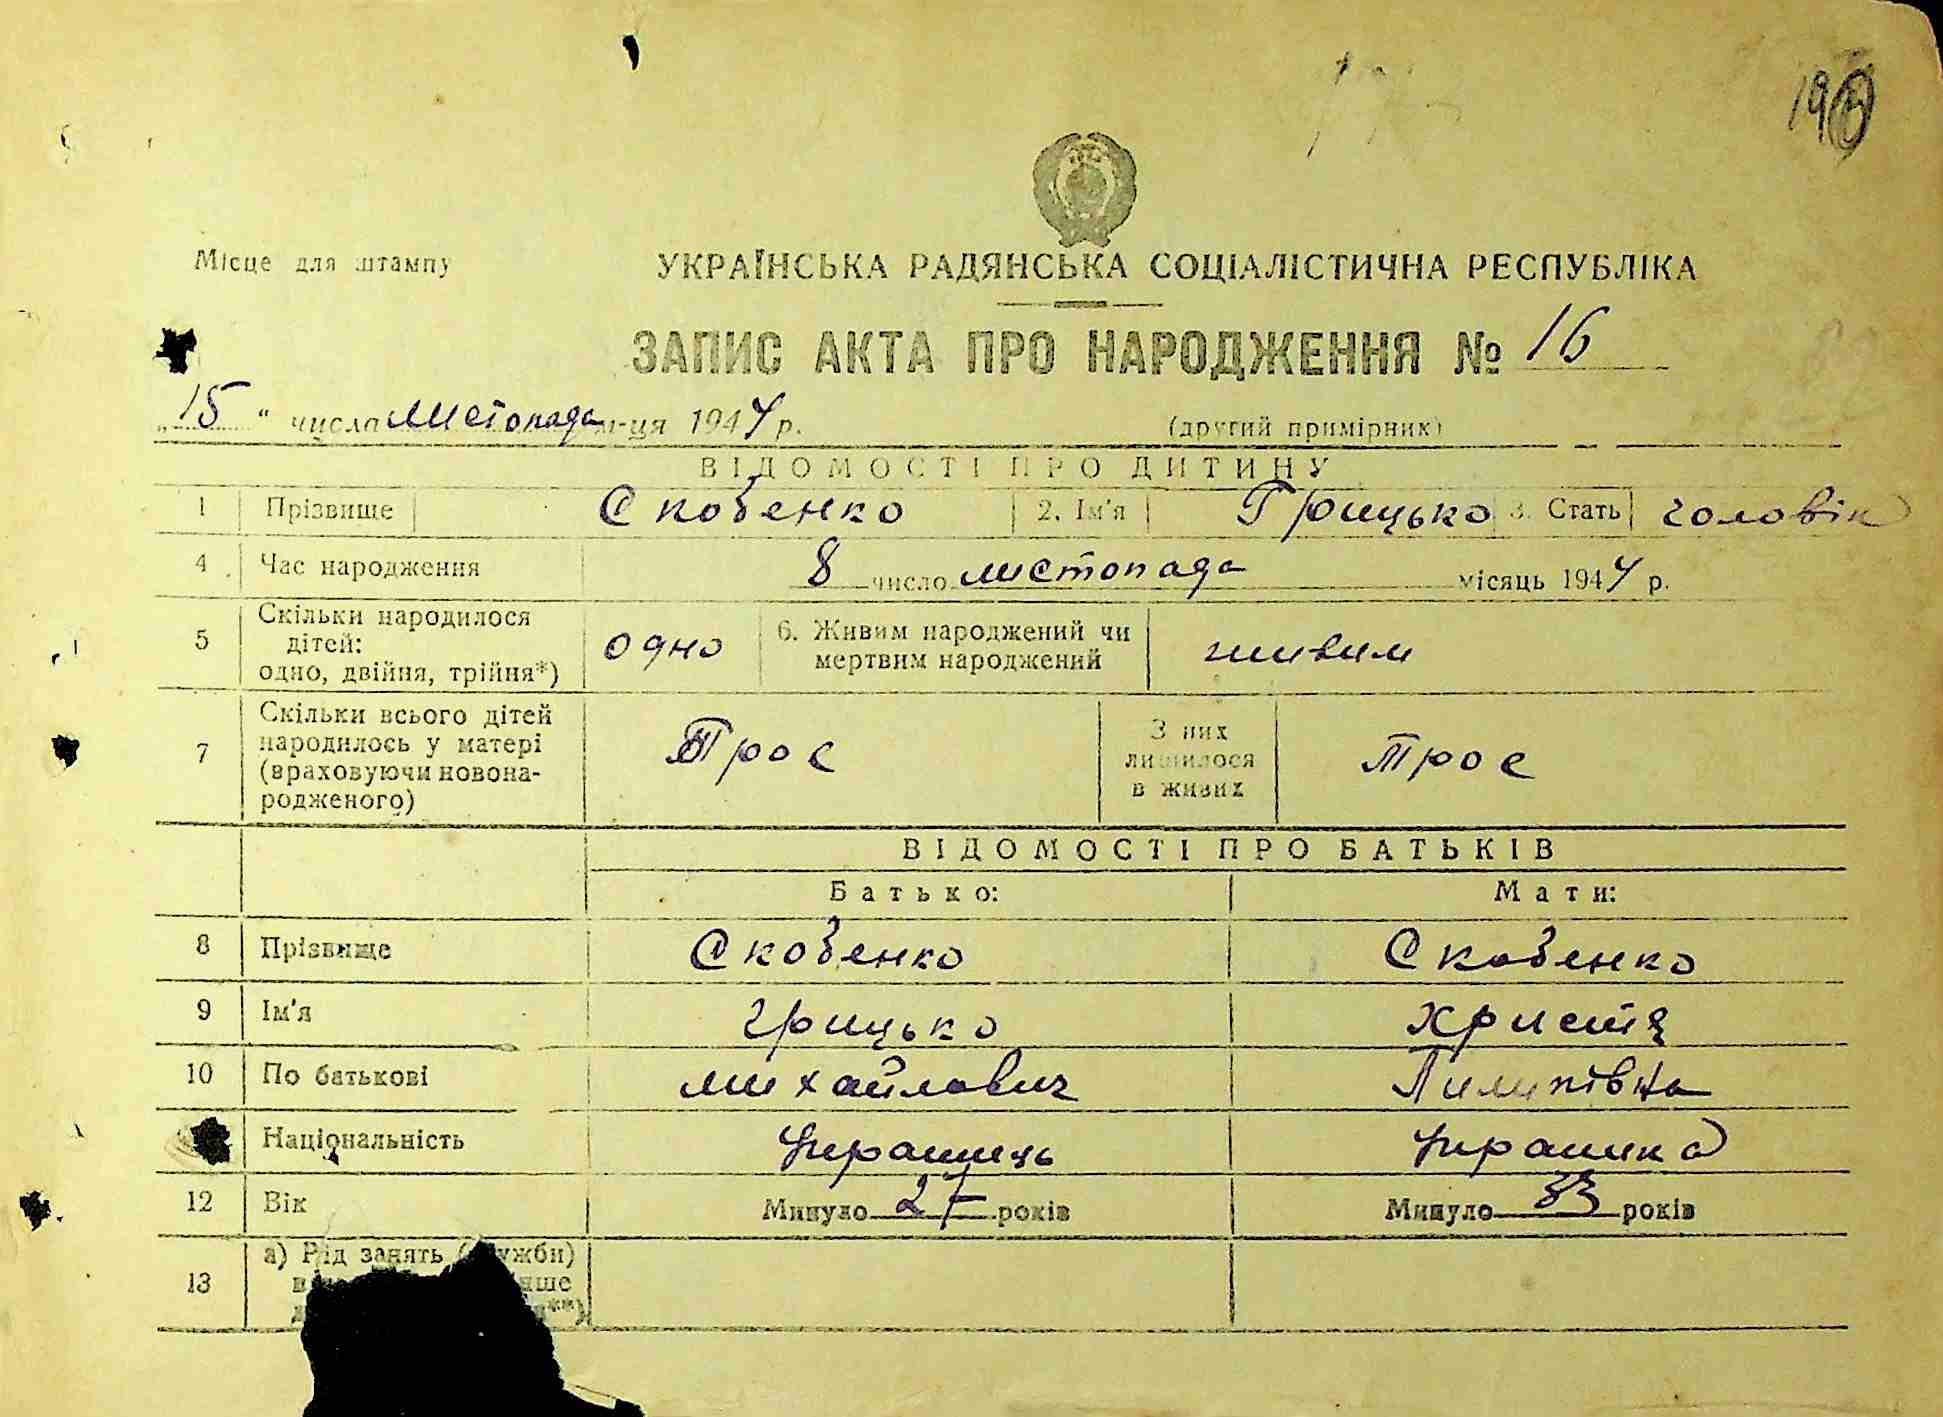 Місце для штампу
УКРАЇНСЬКА РАДЯНСЬКА СОЦІАЛІСТИЧНА РЕСПУБЛІКА
ЗАПИС АКТА ПРО НАРОДЖЕННЯ № 16
„15“ числа листопада м-ця 1944 р. (другий примірник)
ВІДОМОСТІ ПРО ДИТИНУ
1 Прізвище Скобенко 2. Ім'я Грицько 3. Стать чоловік
4 Час народження 8 число листопада місяць 1944 р.
5 Скільки народилося дітей: одно, двійня, трійня*) одно 6. Живим народжений чи мертвим народжений живим
7 Скільки всього дітей народилось у матері (враховуючи новонародженого) Троє З них лишилося в живих Троє
ВІДОМОСТІ ПРО БАТЬКІВ
Батько: Мати:
8 Прізвище Скобенко Скобенко
9 Ім'я Грицько Христя
10 По батькові Михайлович Пилипівна
Національність Українець Українка
12 Вік Минуло 27 років Минуло 33 років
13 а) Рід занять (служби)